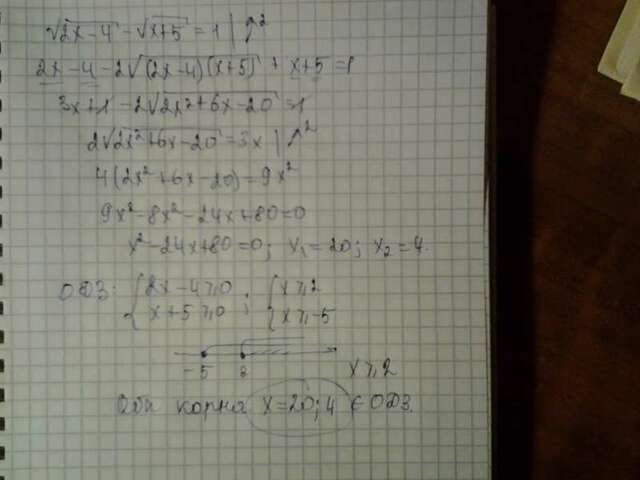 √2x-4 - √x+5 = 1 | ↑²
2x - 4 - 2√(2x-4)(x+5) + x+5 = 1
3x+1 - 2√2x²+6x-20 = 1
2√2x²+6x-20 = 3x | ↑²
4(2x²+6x-20) = 9x²
9x²-8x²-24x+80=0
x²-24x+80=0; x₁=20; x₂=4.
ОДЗ: { 2x-4⩾0 ; { x⩾2
x+5⩾0 x⩾-5
-5 2 x⩾2
Оба корня x=20; 4 ∈ ОДЗ.